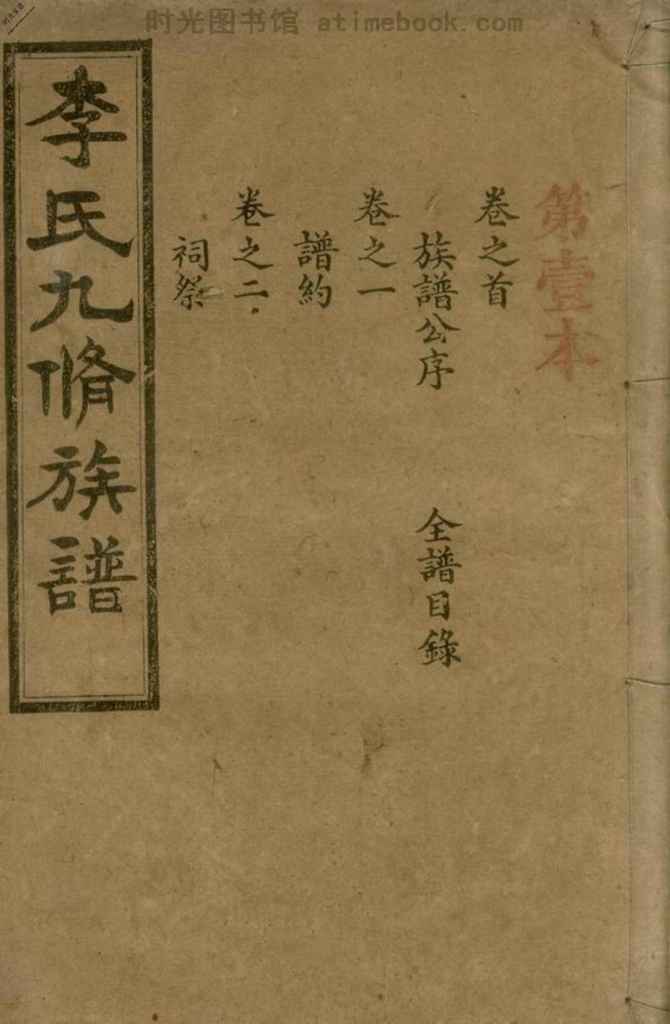 时光图书馆 atimebook.com
第壹本
卷之首
族譜公序 全譜目錄
卷之一
譜約
卷之二
祠祭
李氏九脩族譜